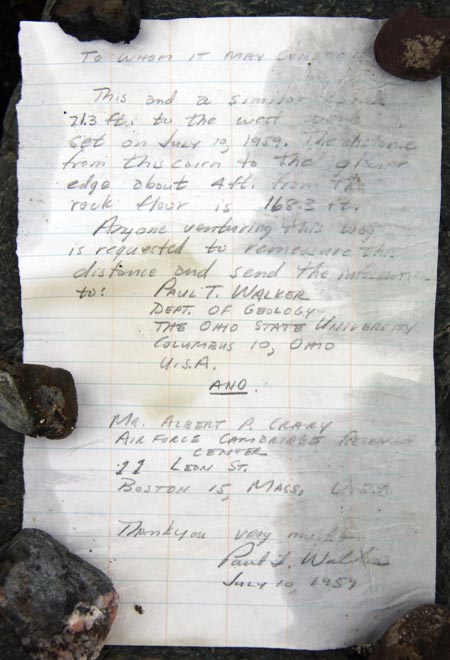 TO WHOM IT MAY CONCERN
This and a similar cairn
21.3 ft. to the west were
set on July 10, 1959. The distance
from this cairn to the glacier
edge about 4 ft. from the
rock floor is 168.3 ft.
Anyone venturing this way
is requested to remeasure this
distance and send the information
to: PAUL T. WALKER
DEPT. OF GEOLOGY
THE OHIO STATE UNIVERSITY
COLUMBUS 10, OHIO
U.S.A.
AND.
MR. ALBERT P. CRARY
AIR FORCE CAMBRIDGE RESEARCH
CENTER
11 LEON ST.
BOSTON 15, MASS. U.S.A.
Thankyou very much
Paul T. Walker
July 10, 1959